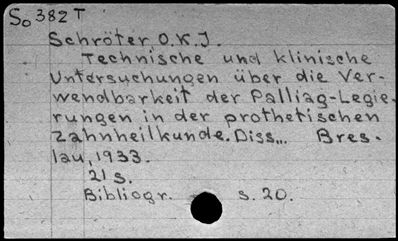 So 382 T
Schröter O.K.J.
Technische und klinische
Untersuchungen über die Ver-
wendbarkeit der Palliag-Legie-
rungen in der prothetischen
Zahnheilkunde. Diss... Bres-
lau, 1933.
21 s.
Bibliogr. s. 20.